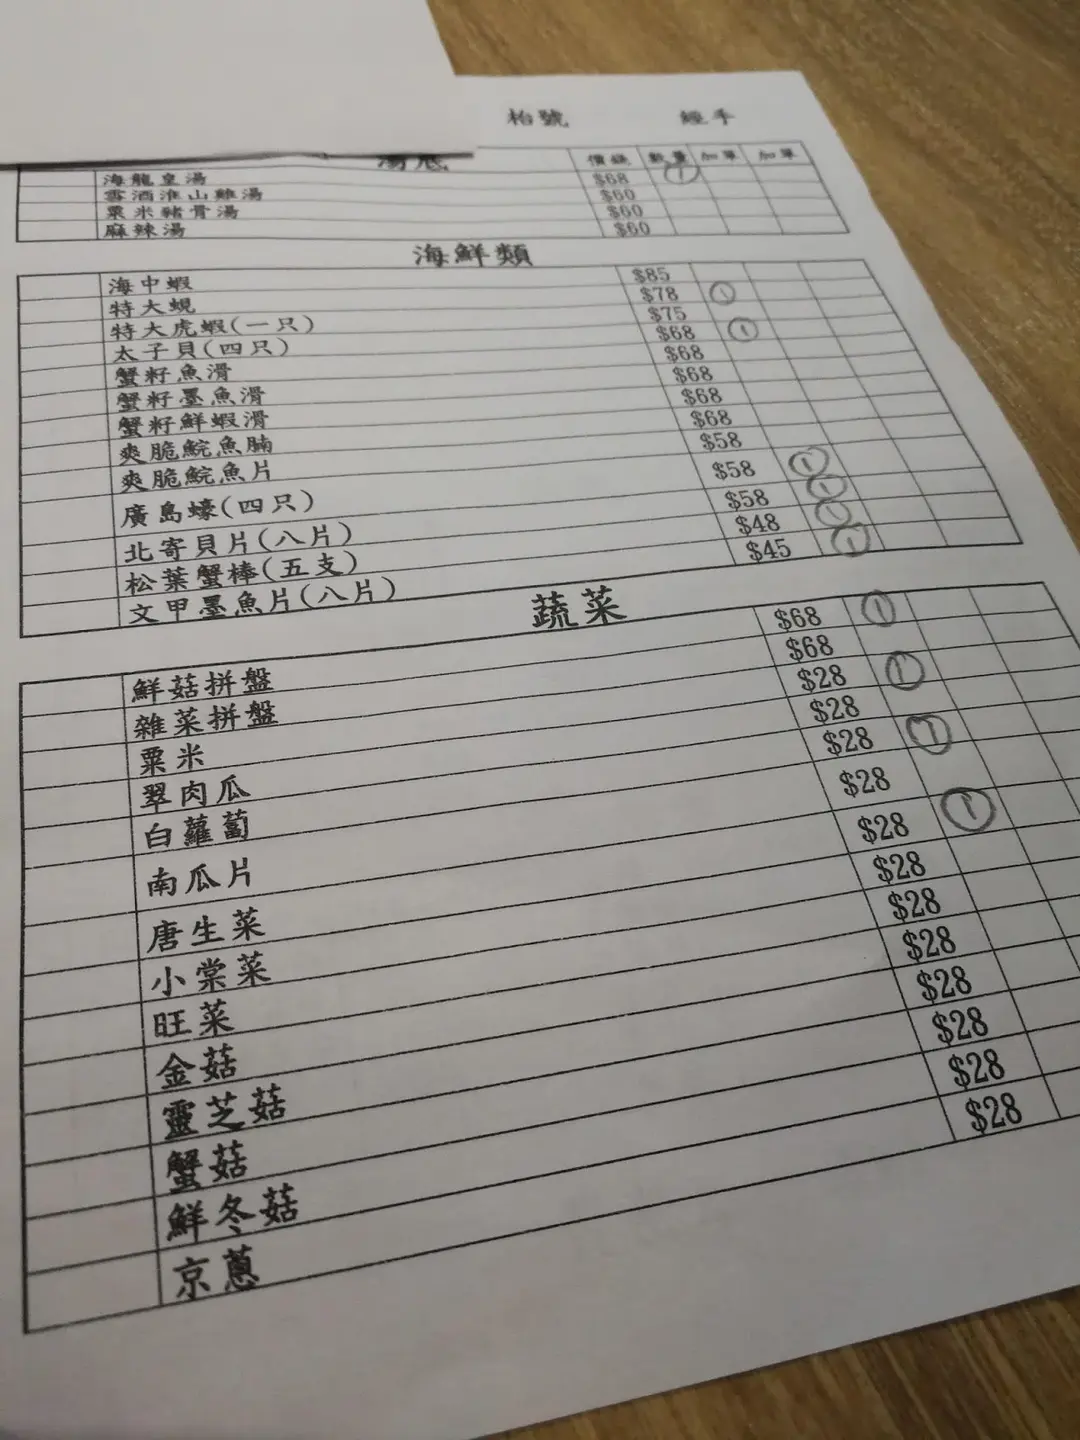 枱號 經手
湯底 價錢 數量 加單 加單
海龍皇湯 $68 1
雲酒淮山雞湯 $60
粟米豬骨湯 $60
麻辣湯 $60
海鮮類
海中蝦 $85
特大蜆 $78 1
特大虎蝦(一只) $75
太子貝(四只) $68 1
蟹籽魚滑 $68
蟹籽墨魚滑 $68
蟹籽鮮蝦滑 $68
爽脆鯇魚腩 $68
爽脆鯇魚片 $58
廣島蠔(四只) $58 1
北寄貝片(八片) $58 1
松葉蟹棒(五支) $48 1
文甲墨魚片(八片) $45 1
蔬菜
鮮菇拼盤 $68 1
雜菜拼盤 $68
粟米 $28 1
翠肉瓜 $28
白蘿蔔 $28 1
南瓜片 $28
唐生菜 $28 1
小棠菜 $28
旺菜 $28
金菇 $28
靈芝菇 $28
蟹菇 $28
鮮冬菇 $28
京蔥 $28